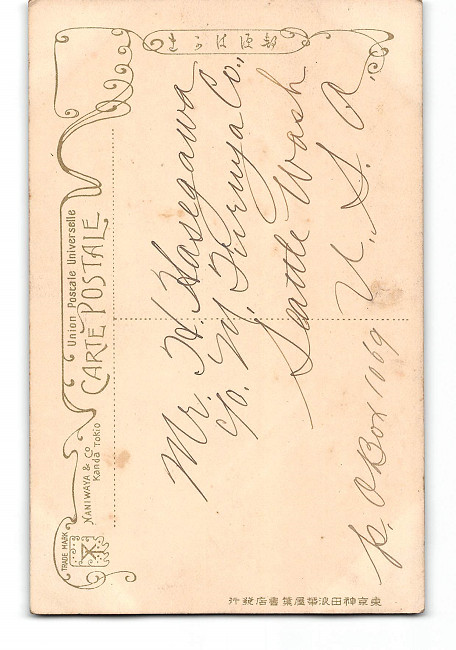 きかは便郵
Union Postale Universelle
CARTE POSTALE
NANIWAYA & CO
Kanda Tokio
TRADE MARK
Mr. H. Hasegawa
c/o. M. Furuya Co.,
Seattle Wash
U. S. A.
P. O Box 1069
東京神田浪華屋葉書店発行